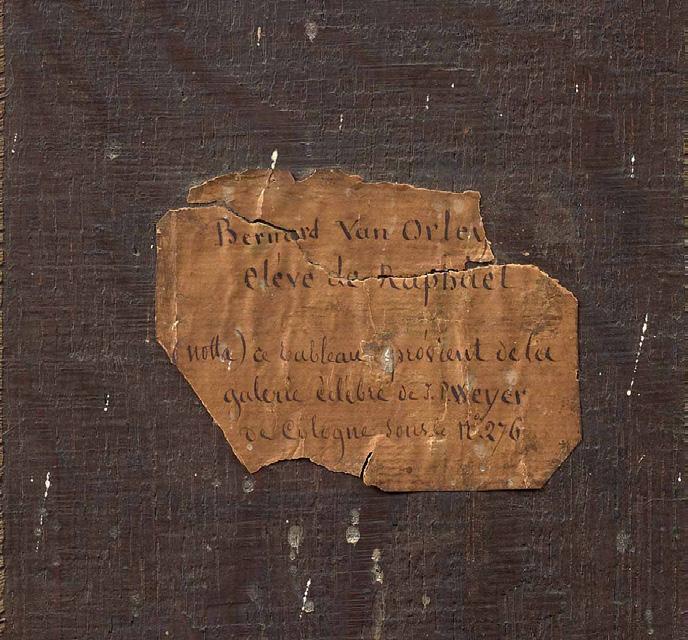 Bernard Van Orley
elève de Raphaël
(notta) ce tableau provient de la
galerie célèbre de J. P. Weyer
de Cologne sous le N° 276